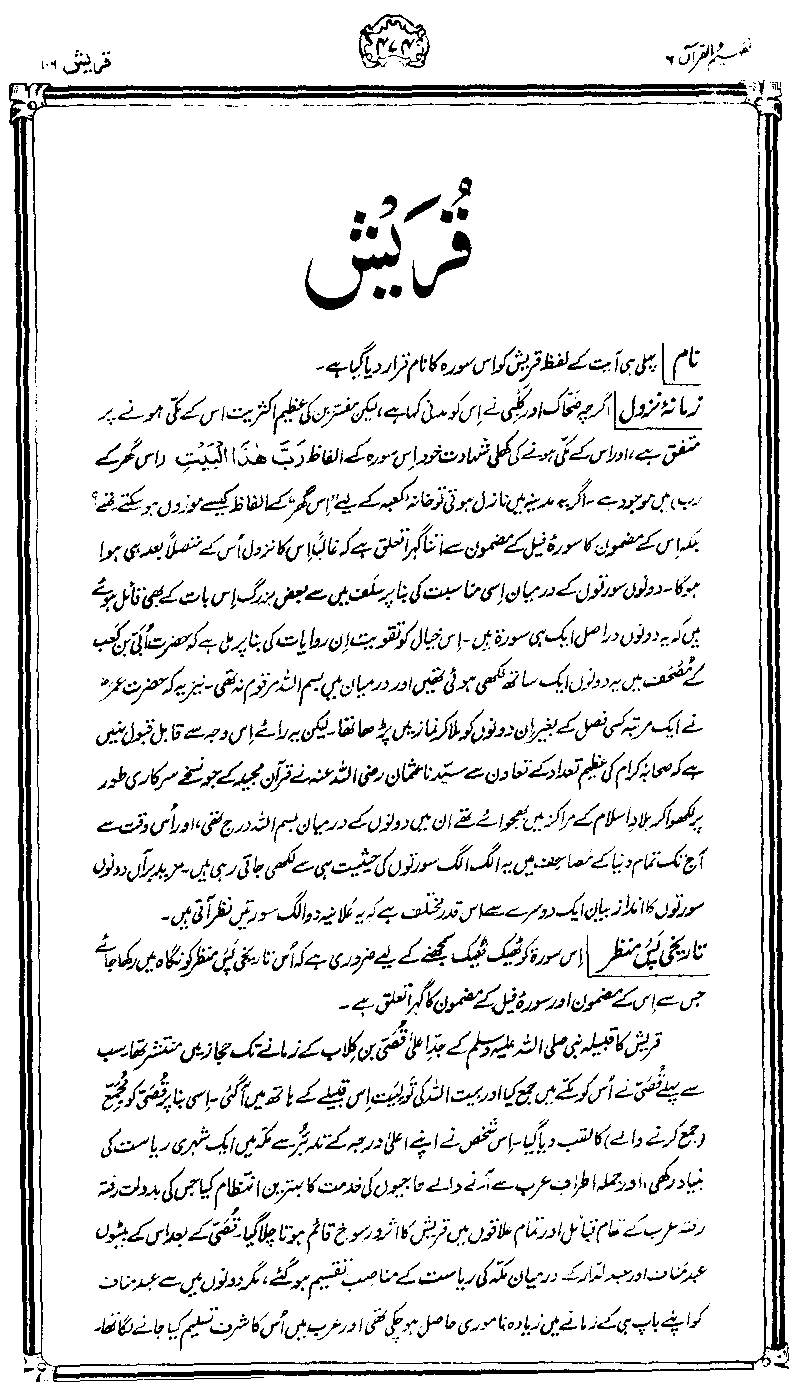 تفہیم القرآن ۶
۴۷۴
قریش ۱۰۶
قُرَیْش
نام پہلی ہی آیت کے لفظ قریش کو اس سورہ کا نام قرار دیا گیا ہے۔
زمانۂ نزول اگرچہ ضحّاک اور کَلْبی نے اِس کو مدنی کہا ہے، لیکن مفسّرین کی عظیم اکثریت اس کے مکّی ہونے پر
متفق ہے، اور اس کے مکّی ہونے کی کھلی شہادت خود اِس سورہ کے الفاظ رَبَّ هٰذَا الْبَيْتِ (اس گھر کے
رب) میں موجود ہے۔ اگر یہ مدینہ میں نازل ہوتی تو خانہ کعبہ کے لیے "اِس گھر" کے الفاظ کیسے موزوں ہو سکتے تھے؟
بلکہ اِس کے مضمون کا سورۂ فیل کے مضمون سے اتنا گہرا تعلق ہے کہ غالباً اِس کا نزول اُس کے متصلاً بعد ہی ہوا
ہوگا۔ دونوں سورتوں کے درمیان اِسی مناسبت کی بنا پر سَلَف میں سے بعض بزرگ اِس بات کے بھی قائل ہوئے
ہیں کہ یہ دونوں دراصل ایک ہی سورۃ ہیں۔ اِس خیال کو تقویت اِن روایات کی بنا پر ملی ہے کہ حضرت اُبَیّ بن کعب
کے مُصْحَف میں یہ دونوں ایک ساتھ لکھی ہوئی تھیں اور درمیان میں بسم اللہ مرقوم نہ تھی۔ نیز یہ کہ حضرت عمرؓ
نے ایک مرتبہ کسی فصل کے بغیر اِن دونوں کو ملا کر نماز میں پڑھا تھا۔ لیکن یہ رائے اِس وجہ سے قابل قبول نہیں
ہے کہ صحابۂ کرام کی عظیم تعداد کے تعاون سے سیّدنا عثمان رضی اللہ عنہ نے قرآن مجید کے جو نسخے سرکاری طور
پر لکھوا کر بلادِ اسلام کے مراکز میں بھجوائے تھے ان میں دونوں کے درمیان بسم اللہ درج تھی، اور اُس وقت سے
آج تک تمام دنیا کے مصاحف میں یہ الگ الگ سورتوں کی حیثیت ہی سے لکھی جاتی رہی ہیں۔ مزید برآں دونوں
سورتوں کا انداز بیان ایک دوسرے سے اس قدر مختلف ہے کہ یہ علانیہ دو الگ سورتیں نظر آتی ہیں۔
تاریخی پس منظر اِس سورۃ کو ٹھیک ٹھیک سمجھنے کے لیے ضروری ہے کہ اُس تاریخی پَس منظر کو نگاہ میں رکھا جائے
جس سے اِس کے مضمون اور سورۂ فیل کے مضمون کا گہرا تعلق ہے۔
قریش کا قبیلہ نبی صلی اللہ علیہ وسلم کے جدِّ اعلیٰ قُصَیّ بن کِلاب کے زمانے تک حجاز میں منتشر تھا۔ سب
سے پہلے قُصَیّ نے اُس کو مکّے میں جمع کیا اور بیت اللہ کی تَوْلیَت اِس قبیلے کے ہاتھ میں آ گئی۔ اِسی بنا پر قُصَیّ کو مُجَمِّع
(جمع کرنے والے) کا لقب دیا گیا۔ اِس شخص نے اپنے اعلیٰ درجہ کے تدبّر سے مکّہ میں ایک شہری ریاست کی
بنیاد رکھی، اور جملہ اطرافِ عرب سے آنے والے حاجیوں کی خدمت کا بہترین انتظام کیا جس کی بدولت رفتہ
رفتہ عرب کے تمام قبائل اور تمام علاقوں میں قریش کا اثر و رسوخ قائم ہوتا چلا گیا۔ قُصَیّ کے بعد اس کے بیٹوں
عبد مَناف اور عبد الدّار کے درمیان مکّہ کی ریاست کے مناصب تقسیم ہو گئے، مگر دونوں میں سے عبد مناف
کو اپنے باپ ہی کے زمانے میں زیادہ ناموری حاصل ہو چکی تھی اور عرب میں اُس کا شرف تسلیم کیا جانے لگا تھا۔